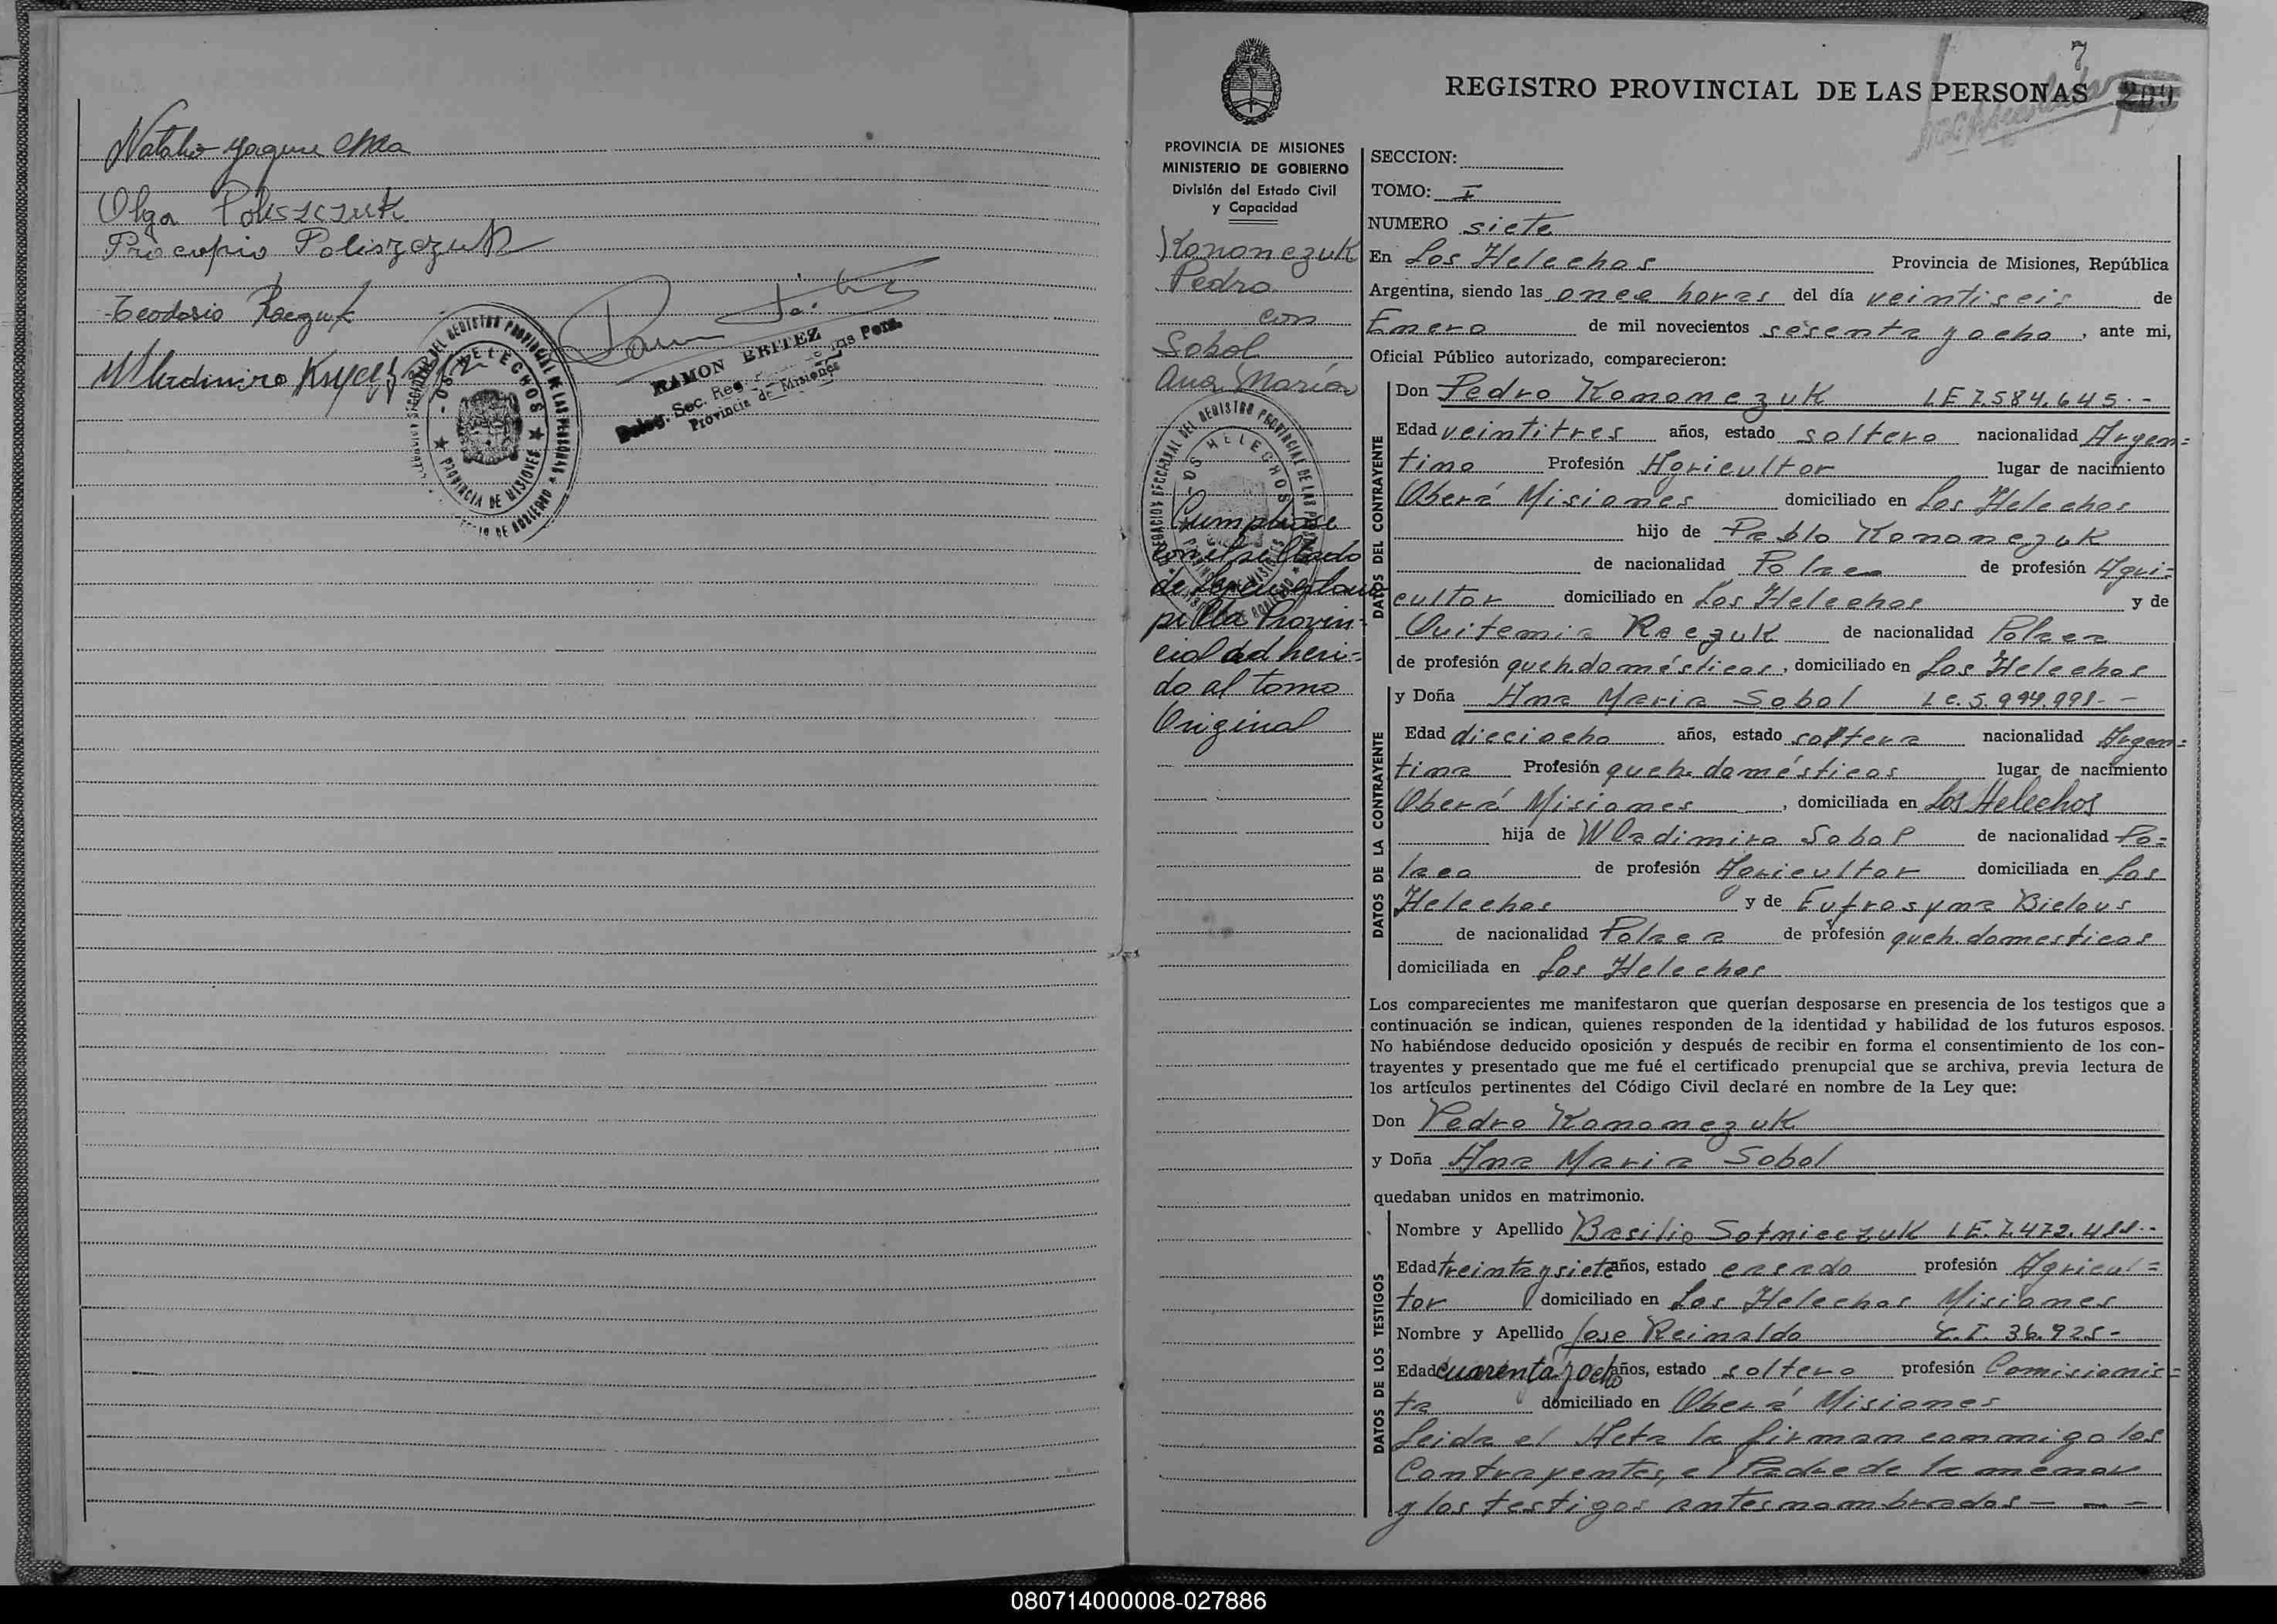 Natalio
Olga Poliszczuk
Procopio Poliszczuk
Teodosio Raczuk
Wladimiro
RAMON BRITEZ
Deleg. Sec. Reg. las Pers.
Provincia de Misiones
LOS HELECHOS
PROVINCIA DE MISIONES
7
REGISTRO PROVINCIAL DE LAS PERSONAS 209
PROVINCIA DE MISIONES
MINISTERIO DE GOBIERNO
División del Estado Civil
y Capacidad
Kononczuk
Pedro
con
Sobol
Ana María
LOS HELECHOS
Cumplase
con el sellado
de Ley
pilla Provin-
cial adheri-
do al tomo
Original
SECCION:
TOMO: I
NUMERO siete
En Los Helechos Provincia de Misiones, República
Argentina, siendo las once horas del día veintiseis de
Enero de mil novecientos sesenta y ocho, ante mi,
Oficial Público autorizado, comparecieron:
DATOS DEL CONTRAYENTE
Don Pedro Kononczuk LE 7.584.645.-
Edad veintitres años, estado soltero nacionalidad Argen=
tino Profesión Agricultor lugar de nacimiento
Oberá Misiones domiciliado en Los Helechos
hijo de Pablo Kononczuk
de nacionalidad Polaco de profesión Agri=
cultor domiciliado en Los Helechos y de
Quitemia Raczuk de nacionalidad Polaca
de profesión queh.domésticos, domiciliado en Los Helechos
DATOS DE LA CONTRAYENTE
y Doña Ana Maria Sobol Lc. 5.994.991.- -
Edad dieciocho años, estado soltera nacionalidad Argen=
tina Profesión queh. domésticos lugar de nacimiento
Oberá Misiones, domiciliada en Los Helechos
hija de Wladimiro Sobol de nacionalidad Po=
laco de profesión Agricultor domiciliada en Los
Helechos y de Eufrosyna Bielous
de nacionalidad Polaca de profesión queh.domesticos
domiciliada en Los Helechos
Los comparecientes me manifestaron que querían desposarse en presencia de los testigos que a
continuación se indican, quienes responden de la identidad y habilidad de los futuros esposos.
No habiéndose deducido oposición y después de recibir en forma el consentimiento de los con-
trayentes y presentado que me fué el certificado prenupcial que se archiva, previa lectura de
los artículos pertinentes del Código Civil declaré en nombre de la Ley que:
Don Pedro Kononczuk
y Doña Ana Maria Sobol
quedaban unidos en matrimonio.
DATOS DE LOS TESTIGOS
Nombre y Apellido Basilio Sotnieczuk LE.7.472.488.-
Edad treinta y siete años, estado casado profesión Agricul=
tor domiciliado en Los Helechos Misiones
Nombre y Apellido Jose Reinaldo C.I. 36.925-
Edad cuarenta y ocho años, estado soltero profesión Comisionis=
ta domiciliado en Oberá Misiones
Leida el Acta la firman conmigo los
Contrayentes, el Padre de la menor
y los testigos antes nombrados — — —
080714000008-027886